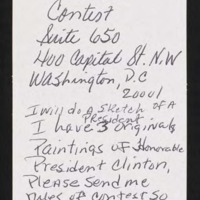 Contest
Suite 650
400 Capital St. N.W
Washington, D.C
20001
I will do a sketch of A
President
I have 3 originals
Paintings of Honorable
President Clinton,
Please Send me
Rules of contest so